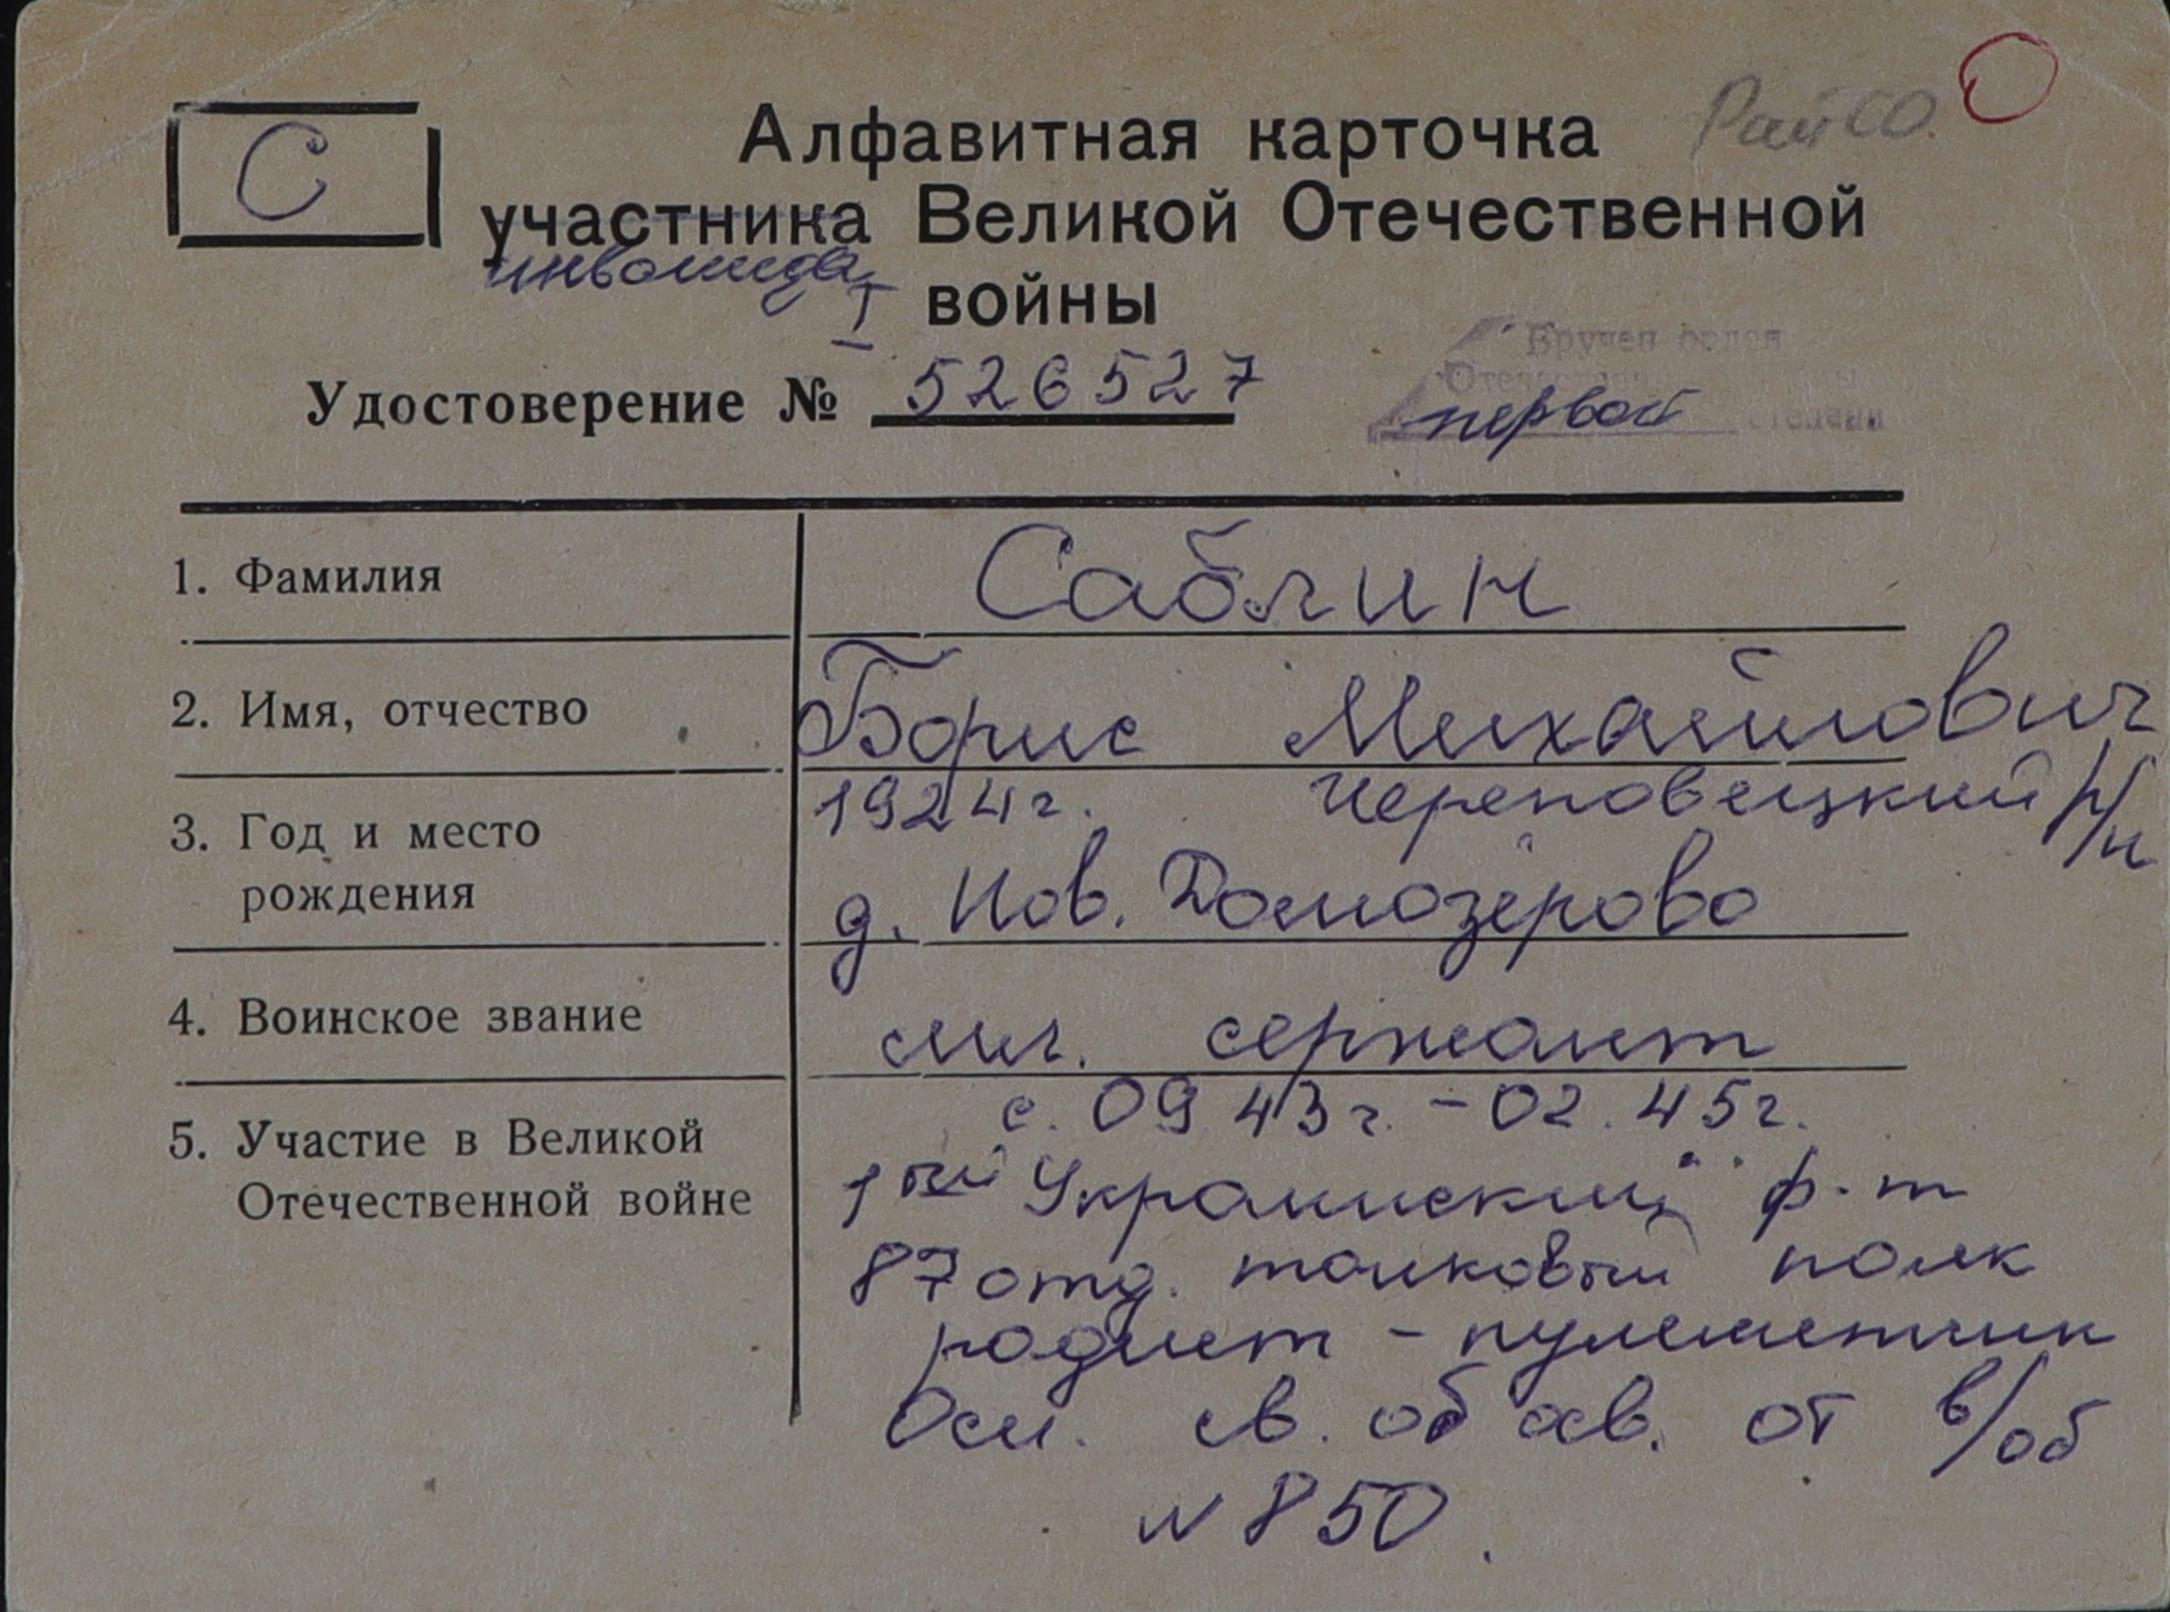 РайСО.
С
Алфавитная карточка
участника Великой Отечественной
инвалида
I
войны
Вручен орден
Отечественной войны
первой степени
Удостоверение № 526527
1. Фамилия
Саблин
2. Имя, отчество
Борис Михайлович
3. Год и место
рождения
1924г. Череповецкий р/н
д. Нов. Домозёрово
4. Воинское звание
мл. сержант
5. Участие в Великой
Отечественной войне
с. 09 43г. - 02. 45г.
1ый Украинский ф-т
87 отд. танковый полк
радист - пулеметчик
Осн. св. об осв. от в/об
№ 850.